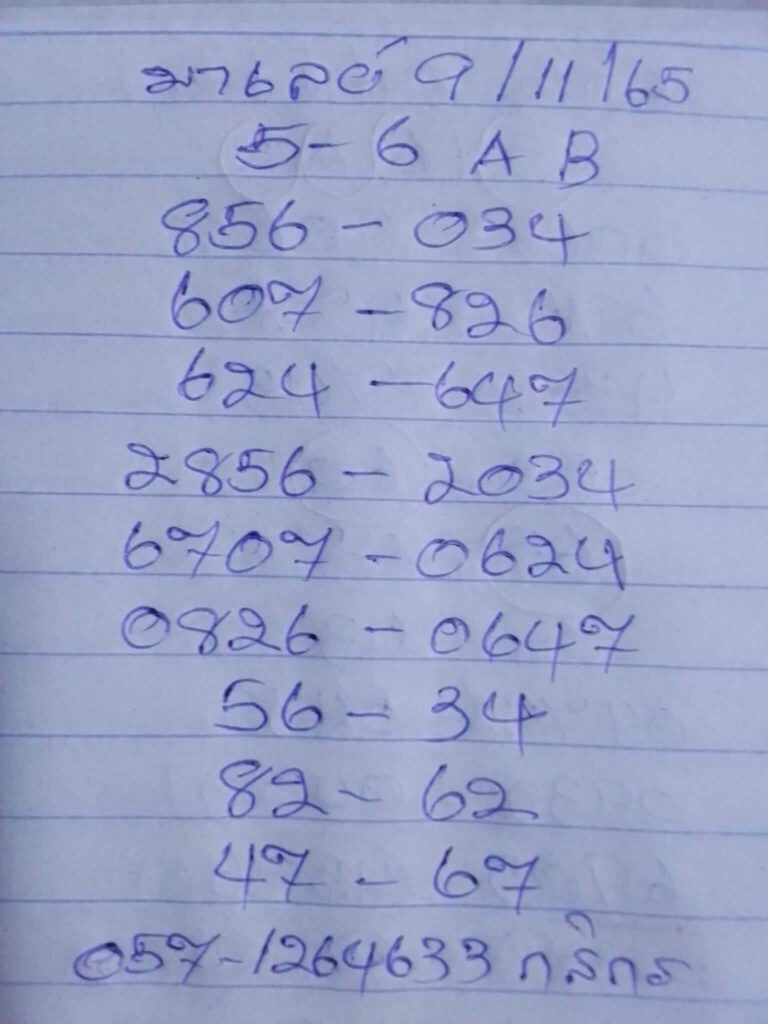 มาเลย์ 9/11/65
5-6 A B
856-034
607-826
624-647
2856-2034
6707-0624
0826-0647
56-34
82-62
47-67
057-1264633 กสิกร